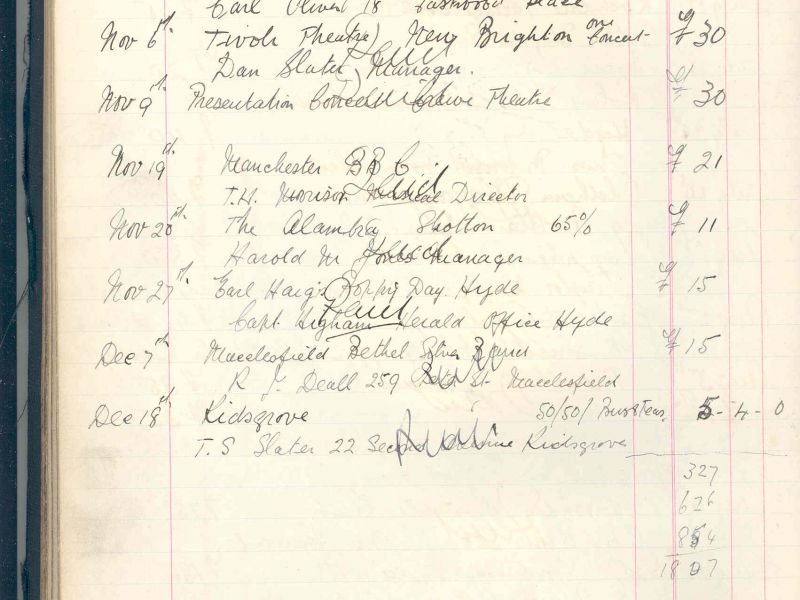 Carl Oliver 18 Eastwood
Nov 6th Tivoli Theatre, New Brighton one Concert £30
Dan Slater, Manager.
Nov 9th Presentation Concert Crewe Theatre £30
Nov 19th Manchester BBC. £21
T.H. Morrison Musical Director
Nov 20th The Alambra Shotton 65% £11
Harold M Jones Manager
Nov 27th Earl Haig's Poppy Day Hyde £15
Capt Higham Herald Office Hyde
Dec 7th Macclesfield Bethel Silver Band £15
R J. Deall 259 St. Macclesfield
Dec 18th Kidsgrove 50/50/ Bus & Teas. 5-4-0
T.S Slater 22 Second Avenue Kidsgrove
327
626
854
1807